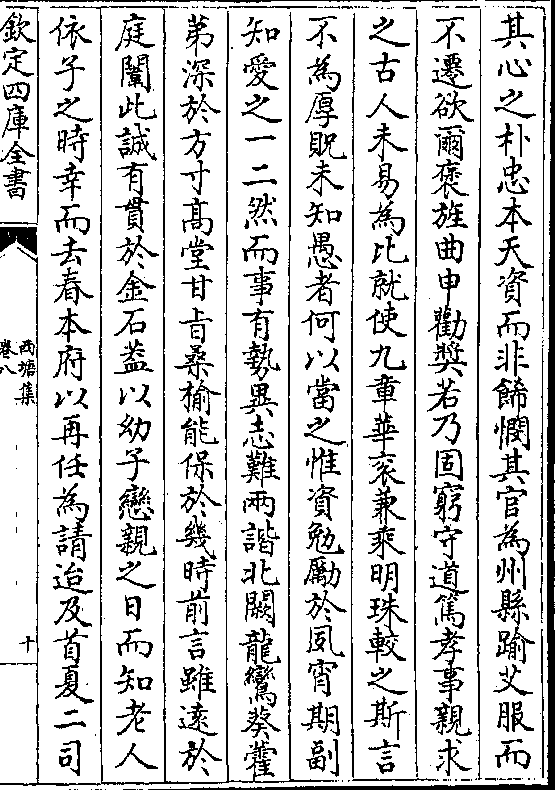 其心之朴忠本天資而非餙憫其官為州縣踰艾服而
不遷欲爾褒旌曲申勸奬若乃固窮守道篤孝事親求
之古人未易為比就使九章華衮兼乘明珠較之斯言
不為厚貺未知愚者何以當之惟資勉勵於夙宵期副
知愛之一二然而事有勢異志難兩諧北闕龍鸞葵藿
苐深於方寸髙堂甘㫖桑榆能保於幾時前言雖逺於
庭闈此誠有貫於金石葢以幼子戀親之日而知老人
依子之時幸而去春本府以再任為請迨及首夏二司
欽定四庫全書
西塘集
卷八
十